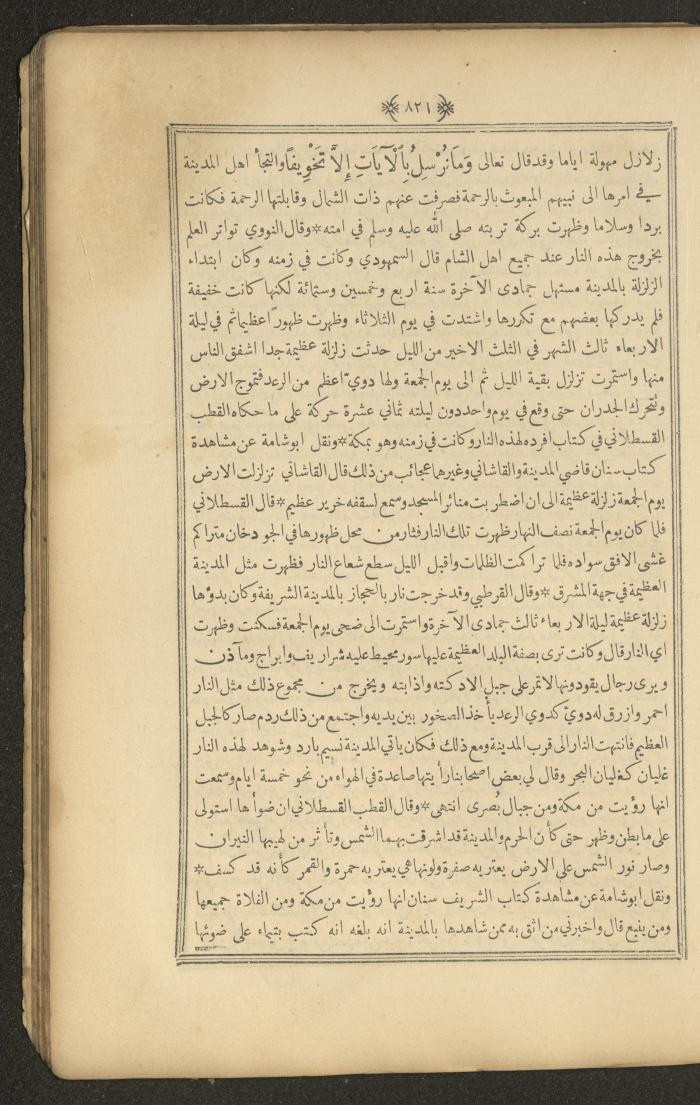 ﴿٨٢١﴾
زلازل مهولة اياما وقدقال تعالى وَمَا نُرْسِلُ بِٱلْآيَاتِ إِلَّا تَخْوِيفًا والتجأ اهل المدينة
في امرها الى نبيهم المبعوث بالرحمة فصرفت عنهم ذات الشمال وقابلتها الرحمة فكانت
بردا وسلاما وظهرت بركة تربته صلى الله عليه وسلم في امته * وقال النووي تواتر العلم
بخروج هذه النار عند جميع اهل الشام قال السمهودي وكانت في زمنه وكان ابتداء
الزلزلة بالمدينة مستهل جمادى الآخرة سنة اربع وخمسين وستمائة لكنها كانت خفيفة
فلم يدركها بعضهم مع تكررها واشتدت في يوم الثلاثاء وظهرت ظهورًا عظيما ثم في ليلة
الاربعاء ثالث الشهر في الثلث الاخير من الليل حدثت زلزلة عظيمة جدا اشفق الناس
منها واستمرت تزلزل بقية الليل ثم الى يوم الجمعة ولها دويّ اعظم من الرعد فتموج الارض
وتتحرك الجدران حتى وقع في يوم واحد دون ليلته ثماني عشرة حركة على ما حكاه القطب
القسطلاني في كتاب افرده لهذه النار وكانت في زمنه وهو بمكة * ونقل ابو شامة عن مشاهدة
كتاب سنان قاضي المدينة والقاشاني وغيرها عجائب من ذلك قال القاشاني تزلزلت الارض
يوم الجمعة زلزلة عظيمة الى ان اضطربت منائر المسجد وسمع لسقفه خرير عظيم * قال القسطلاني
فلما كان يوم الجمعة نصف النهار ظهرت تلك النار فثار من محل ظهورها في الجو دخان متراكم
غشى الافق سواده فلما تراكمت الظلمات واقبل الليل سطع شعاع النار فظهرت مثل المدينة
العظيمة في جهة المشرق * وقال القرطبي وقد خرجت نار بالحجاز بالمدينة الشريفة وكان بدؤها
زلزلة عظيمة ليلة الاربعاء ثالث جمادى الآخرة واستمرت الى ضحى يوم الجمعة فسكنت وظهرت
اي النار قال وكانت ترى بصفة البلد العظيمة عليها سور محيط عليه شراريف وابراج ومآذن
ويرى رجال يقودونها لاتمر على جبل الادكته واذابته ويخرج من مجموع ذلك مثل النار
احمر وازرق له دويّ كدوي الرعد يأخذ الصخور بين يديه واجتمع من ذلك ردم صار كالجبل
العظيم فانتهت النار الى قرب المدينة ومع ذلك فكان ياتي المدينة نسيم بارد وشوهد لهذه النار
غليان كغليان البحر وقال لي بعض اصحابنا رأيتها صاعدة في الهواء من نحو خمسة ايام وسمعت
انها رؤيت من مكة ومن جبال بُصرى انتهى * وقال القطب القسطلاني ان ضوأها استولى
على ما بطن وظهر حتى كأن الحرم والمدينة قد اشرقت بهما الشمس وتأثر من لهيبها النيران
وصار نور الشمس على الارض يعتريه صفرة ولونها هي يعتريه حمرة والقمر كأنه قد كسف *
ونقل ابو شامة عن مشاهدة كتاب الشريف سنان انها رؤيت من مكة ومن الفلاة جميعها
ومن ينبع قال واخبرني من اثق به ممن شاهدها بالمدينة انه بلغه انه كتب بتيماء على ضوئها